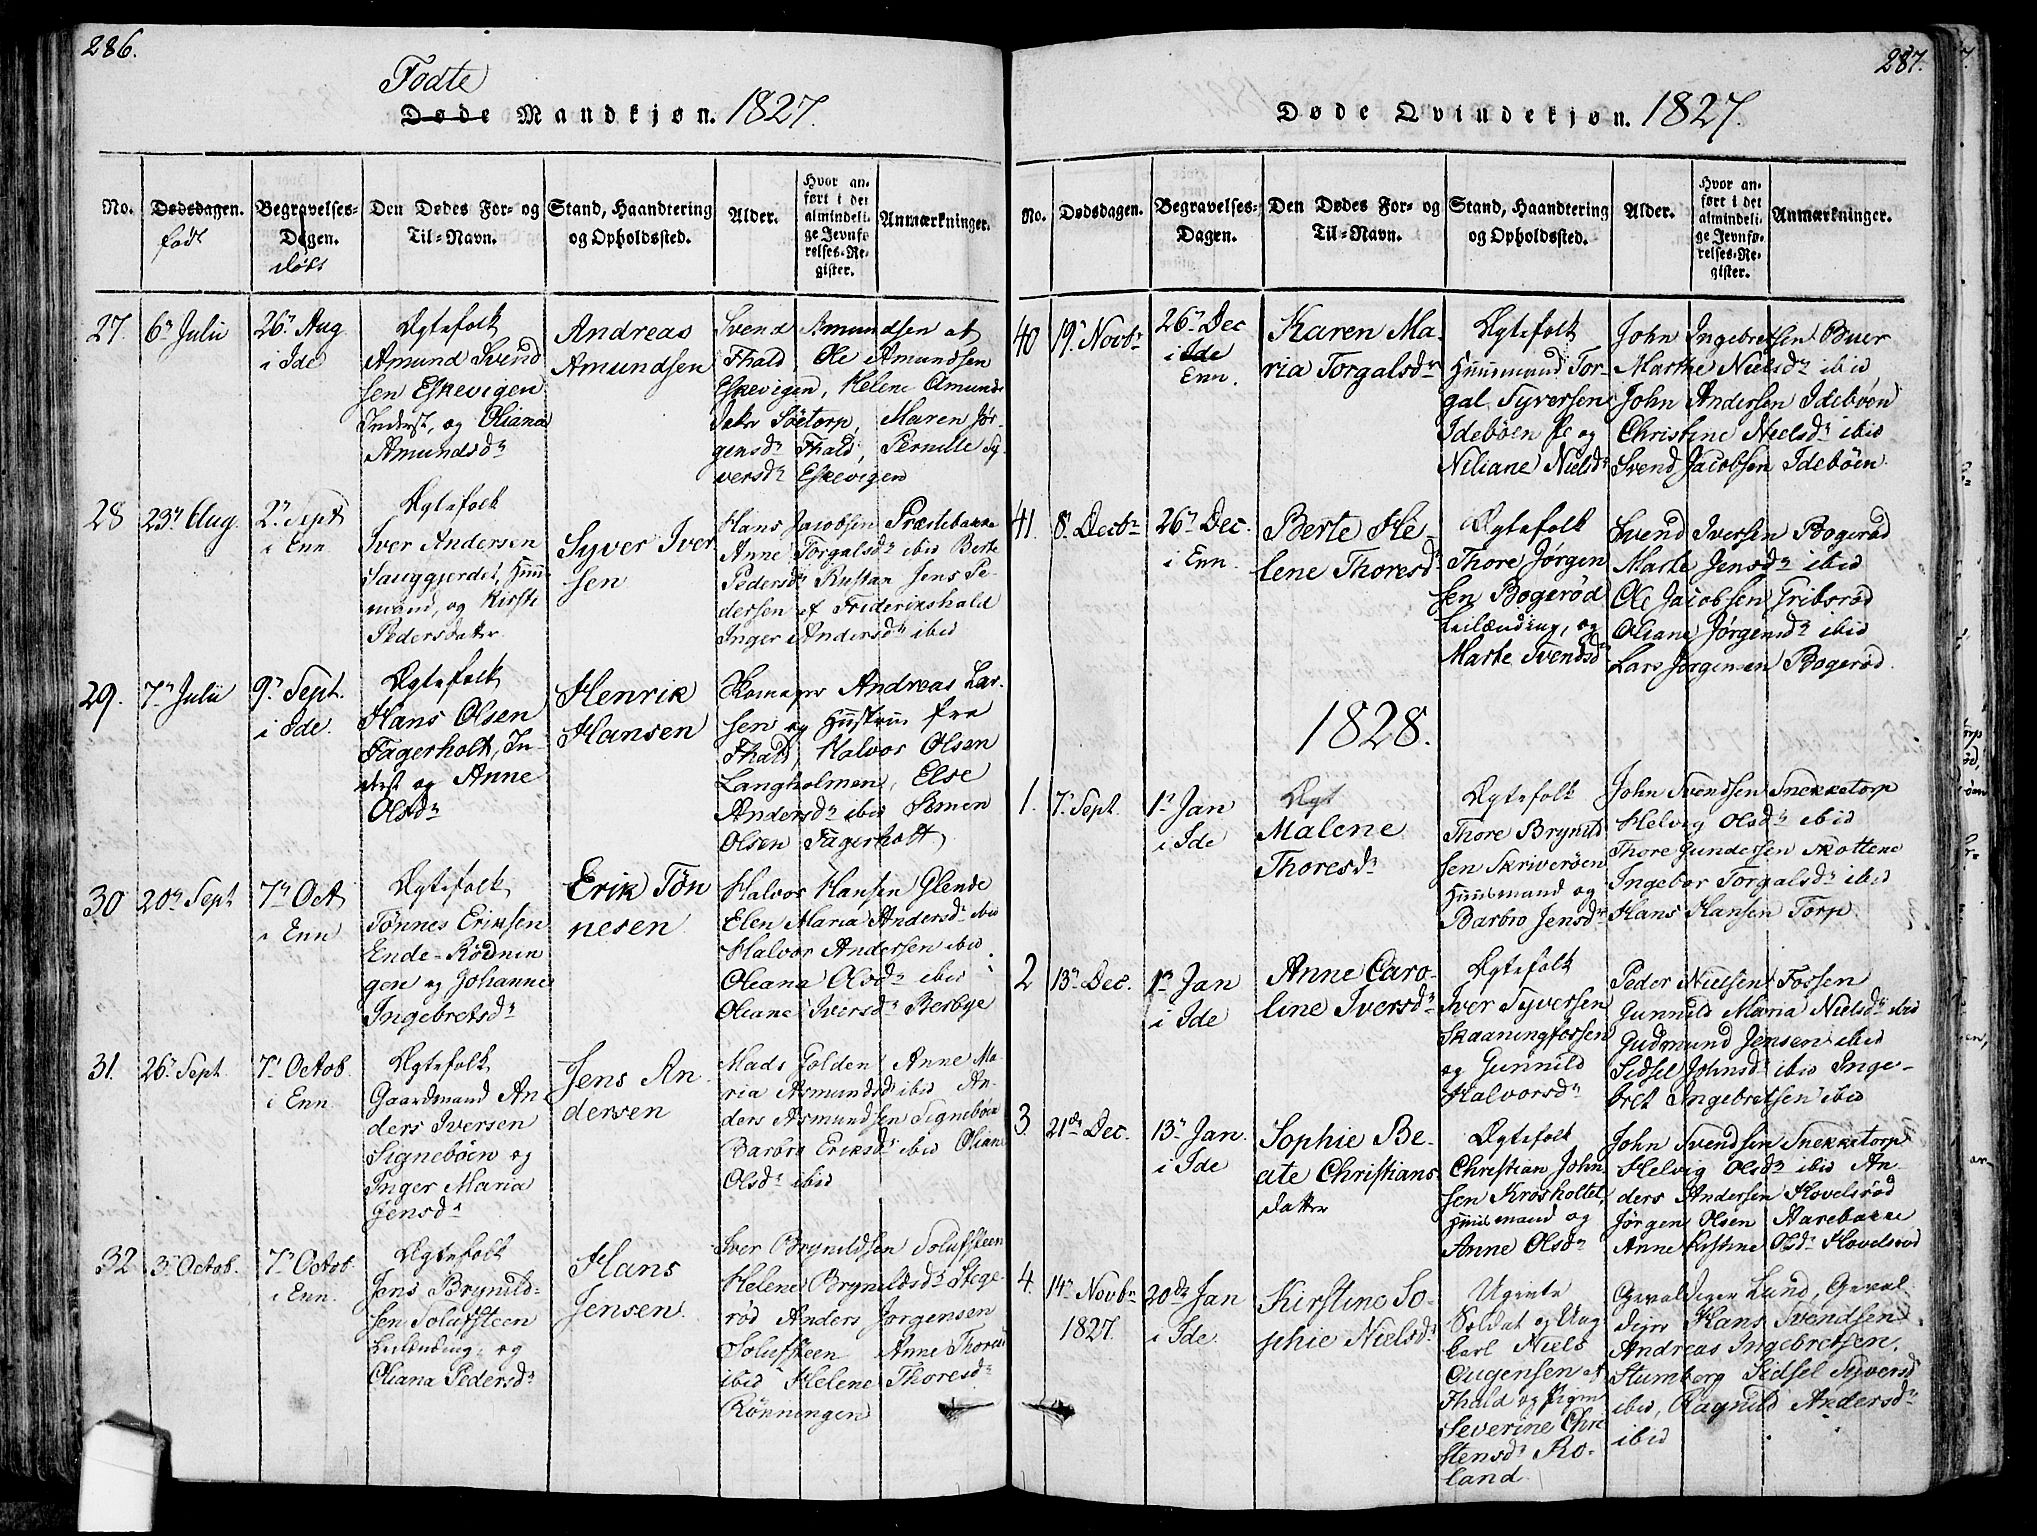 286.
Fodte
Døde Mandkjøn. 1827.
No.
Dødsdagen.
født
Begravelses-
Dagen.
døbt
Den Dødes For- og
Til-Navn.
Stand, Haandtering
og Opholdssted.
Alder.
Hvor an-
ført i det
almindeli-
ge Jevnfø-
relses-Re-
gister.
Anmærkninger.
27. 6n Julii
26n Aug
i Ide
Ægtefolk
Amund Svend
sen Eskevigen
Inderst, og Oliana
Amundsdn
Andreas
Amundsen
Svend Amundsen af
Fhald, Ole Amundsen
Eskevigen, Helene Amunds
Datr Söetorp, Maren Jör-
gensdn Fhald, Pernille Sy-
versdn Eskevigen
28 23n Aug.
2n Sept
i Enn
Ægtefolk
Iver Andersen
Sauggjerdet, Huus
mand, og Kirsti
Pedersdatter
Syver Iver
sen
Hans Jacobsen Præstebakke
Anne Torgalsdn ibid Berte
Pedersdn Rustan Jens Pe-
dersen af Frideriks­hald
Inger Andersdn ibid
29. 7n Julii
9n Sept.
i Ide.
Ægtefolk
Hans Olsen
Fagerholt, In-
derst og Anne
Olsdn
Henrik
Hansen
Skomager Andreas Lar-
sen og Hustrue fra
Fhald, Halvor Olsen
Langholmen, Else
Andersdn ibid Simen
Olsen Fagerholt
30 20n Sept
7n Oct
i Enn
Ægtefolk
Tönnes Eriksen
Ende-Rödnin
gen og Johanne
Ingebretsdn
Erik Tön
nesen
Halvor Hansen Glende
Elen Maria Andersdn ibid
Halvor Andersen ibid
Oleana Olsdn ibid
Oliane Iversdn Berbye
31. 26n Sept.
7n Octob.
i Enn
Ægtefolk
Gaardmand An
ders Iversen
Signebøen og
Inger Maria
Jensdn
Jens An
dersen
Mads Golden Anne Ma-
ria Asmundsd ibid An-
ders Asmundsen Signebøen
Barbro Eriksdn ibid Oliane
Olsdn ibid
32 3n Octob.
7n Octob.
i Enn.
Ægtefolk
Jens Brynild-
sen Solufsteen
Leilænding, og
Oliana Pedersdn
Hans
Jensen.
Iver Brynildsen Solufsteen
Helene Brynildsdn Stege-
rød Anders Jørgensen
Solufsteen Anne Thoresd
ibid Helene Thoresdn
Rönningen
287.
Døde Qvindekjøn. 1827.
No.
Dødsdagen.
Begravelses-
Dagen.
Den Dødes For- og
Til-Navn.
Stand, Haandtering
og Opholdssted.
Alder.
Hvor an-
ført i det
almindeli-
ge Jevnfø-
relses-Re-
gister.
Anmærkninger.
40 19n Novbn
26n Dec
i Ide
Enn.
Karen Ma-
ria Torgalsdn
Ægtefolk
Huusmand Tor-
gal Syversen
Idebøen og
Niliane Nielsdn
John Ingebretsen Buer
Marthe Nielsdn ibid
John Andersen Idebøen
Christine Nielsdn ibid
Svend Jacobsen Idebøen
41. 8n Decbn
26n Dec.
i Enn
Berte He-
lene Thoresdn
Ægtefolk
Thore Jørgen
sen Bogerød
Leilænding, og
Marte Svendsdn
Svend Iversen Bogerød
Marte Jensdn ibid
Ole Jacobsen Gribsrød
Oliane Jørgensdn ibid
Lars Jørgensen Bogerød.
1828.
1. 7n Sept.
1n Jan
i Ide
Ægt
Malene
Thoresdn
Ægtefolk
Thore Brynild
sen Skriverøen
Huusmand og
Barbro Jensdn
John Svendsen Snekketorp
Helvig Olsdn ibid
Thore Gundersen Skottene
Ingebor Torgalsdn ibid
Hans Hansen Torp
2 13n Dec.
1n Jan
i Ide
Anne Caro-
line Iversdn
Ægtefolk
Iver Syversen
Skaaningfossen
og Gunnild
Halvorsdn
Peder Nielsen Fossen
Gunnild Maria Nielsdn ibid
Gudmund Jensen ibid
Sidsel Johnsdn ibid Inge-
bret Ingebretsen ibid
3. 21de Dec.
13n Jan.
i Ide
Sophie Be-
ate Christians
datter
Ægtefolk
Christian John
sen Krosholtet,
Huusmand og
Anne Olsdn
John Svendsen Snekketorp
Helvig Olsdn ibid An-
ders Andersen Hovelsrød
Jørgen Olsen Aarebakke
Anne Kistine Olsdn Hovelsrød
4. 14n Novbn
1827.
20de Jan
i Ide.
Kirstine So-
phie Nielsdn
Ugivte
Soldat og Ung
karl Niels
Augensen af
Fhald og Pigen
Severine Chri
stensdn Ro-
land
Gevaldiger Lund, Geval-
digers Hans Svendsen
Andreas Ingebretsen,
Stumberg Sidsel Syversd
ibid, Ragnild Andersdn
ibid